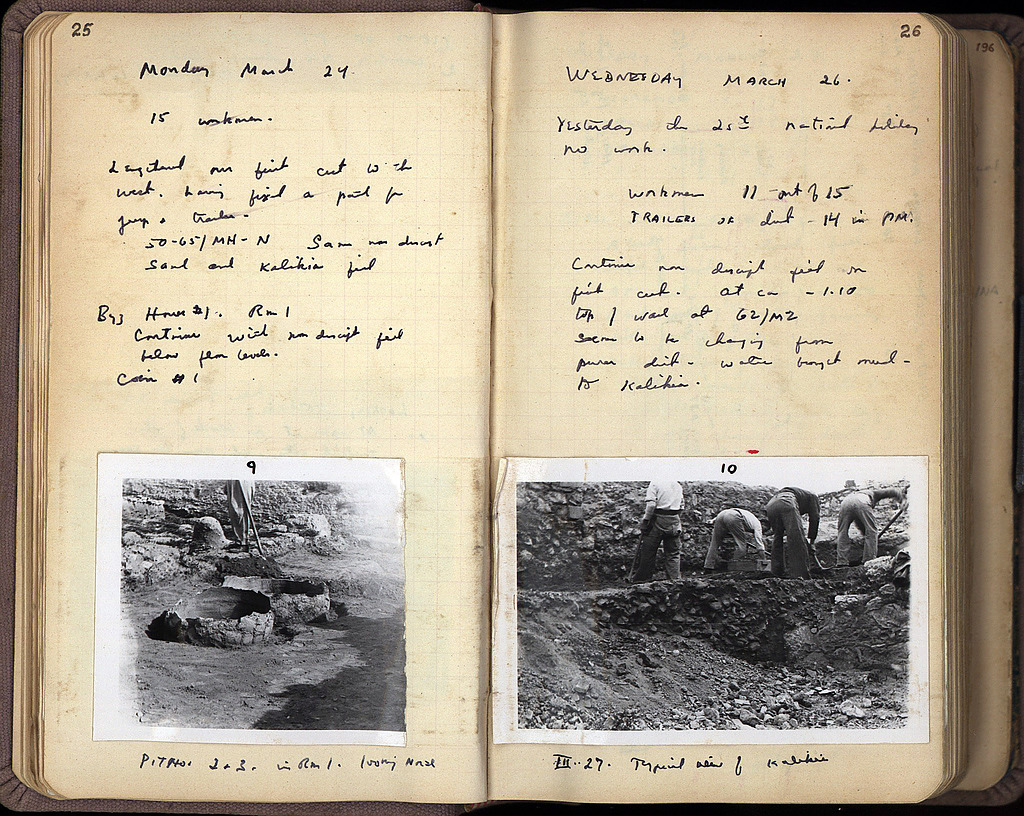 25
Monday March 24.
15 workmen.
our first cut to the
west. having fixed a path for
jeep & trailer.
50-65/MH-N Same non descript
sand and Kalikia fill
Byz House #1. Rm 1
Continue with non descript fill
below floor levels.
Coin #1
9
PITHOI 2 + 3. in Rm 1. looking North
26
WEDNESDAY MARCH 26.
Yesterday the 25th national holiday
no work.
workmen 11 out of 15
TRAILERS OF dirt - 14 in PM.
Continue non descript fill in
first cut. at ca - 1.10
top of wall at 62/M2
seems to be changing from
purer dirt - water brought mud -
to Kalikia.
10
III. 27. Typical view of Kalikia
196